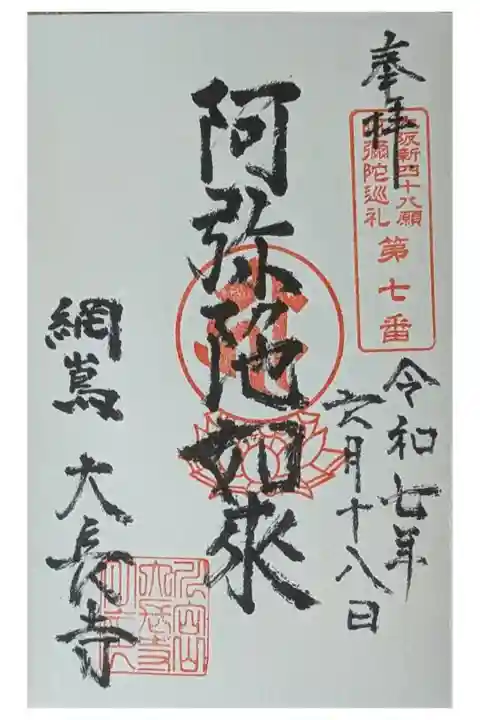 奉拝
大坂新四十八願
阿彌陀巡礼
第七番
令和七年
六月十八日
阿弥陀如来
網嶌 大長寺